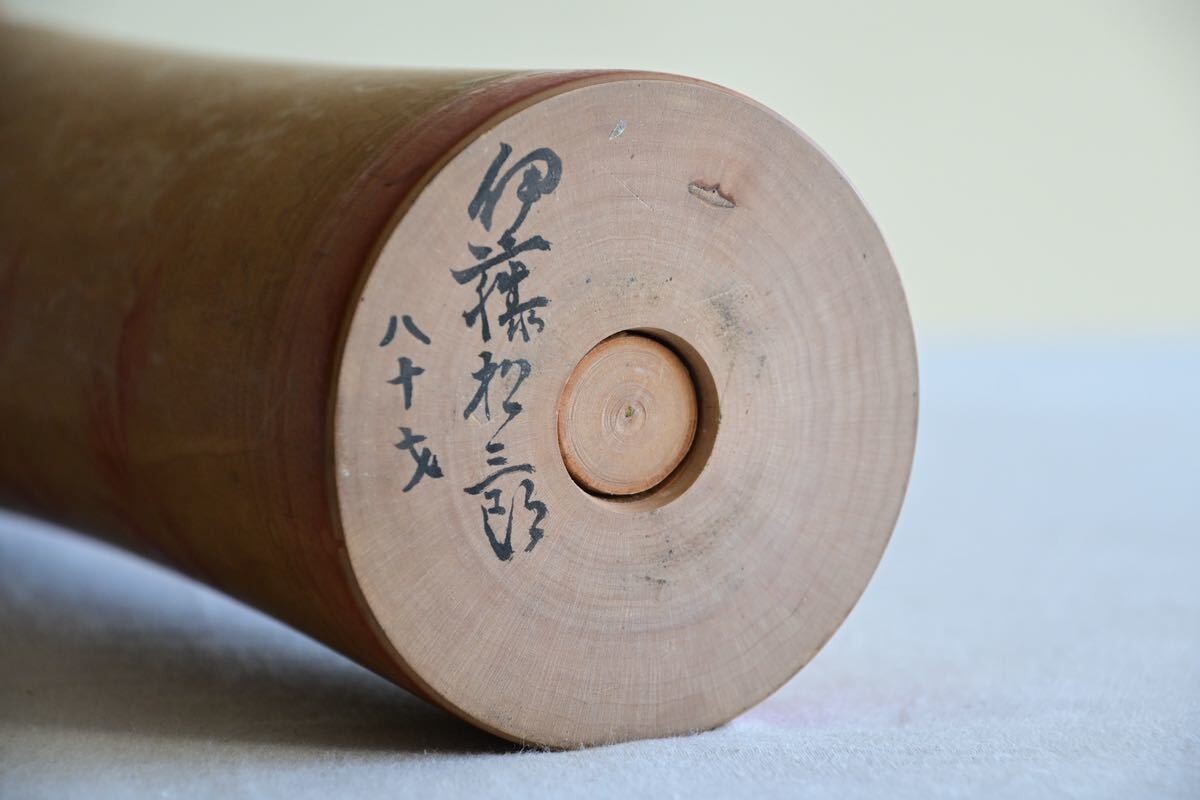 伊藤松三郎
八十才